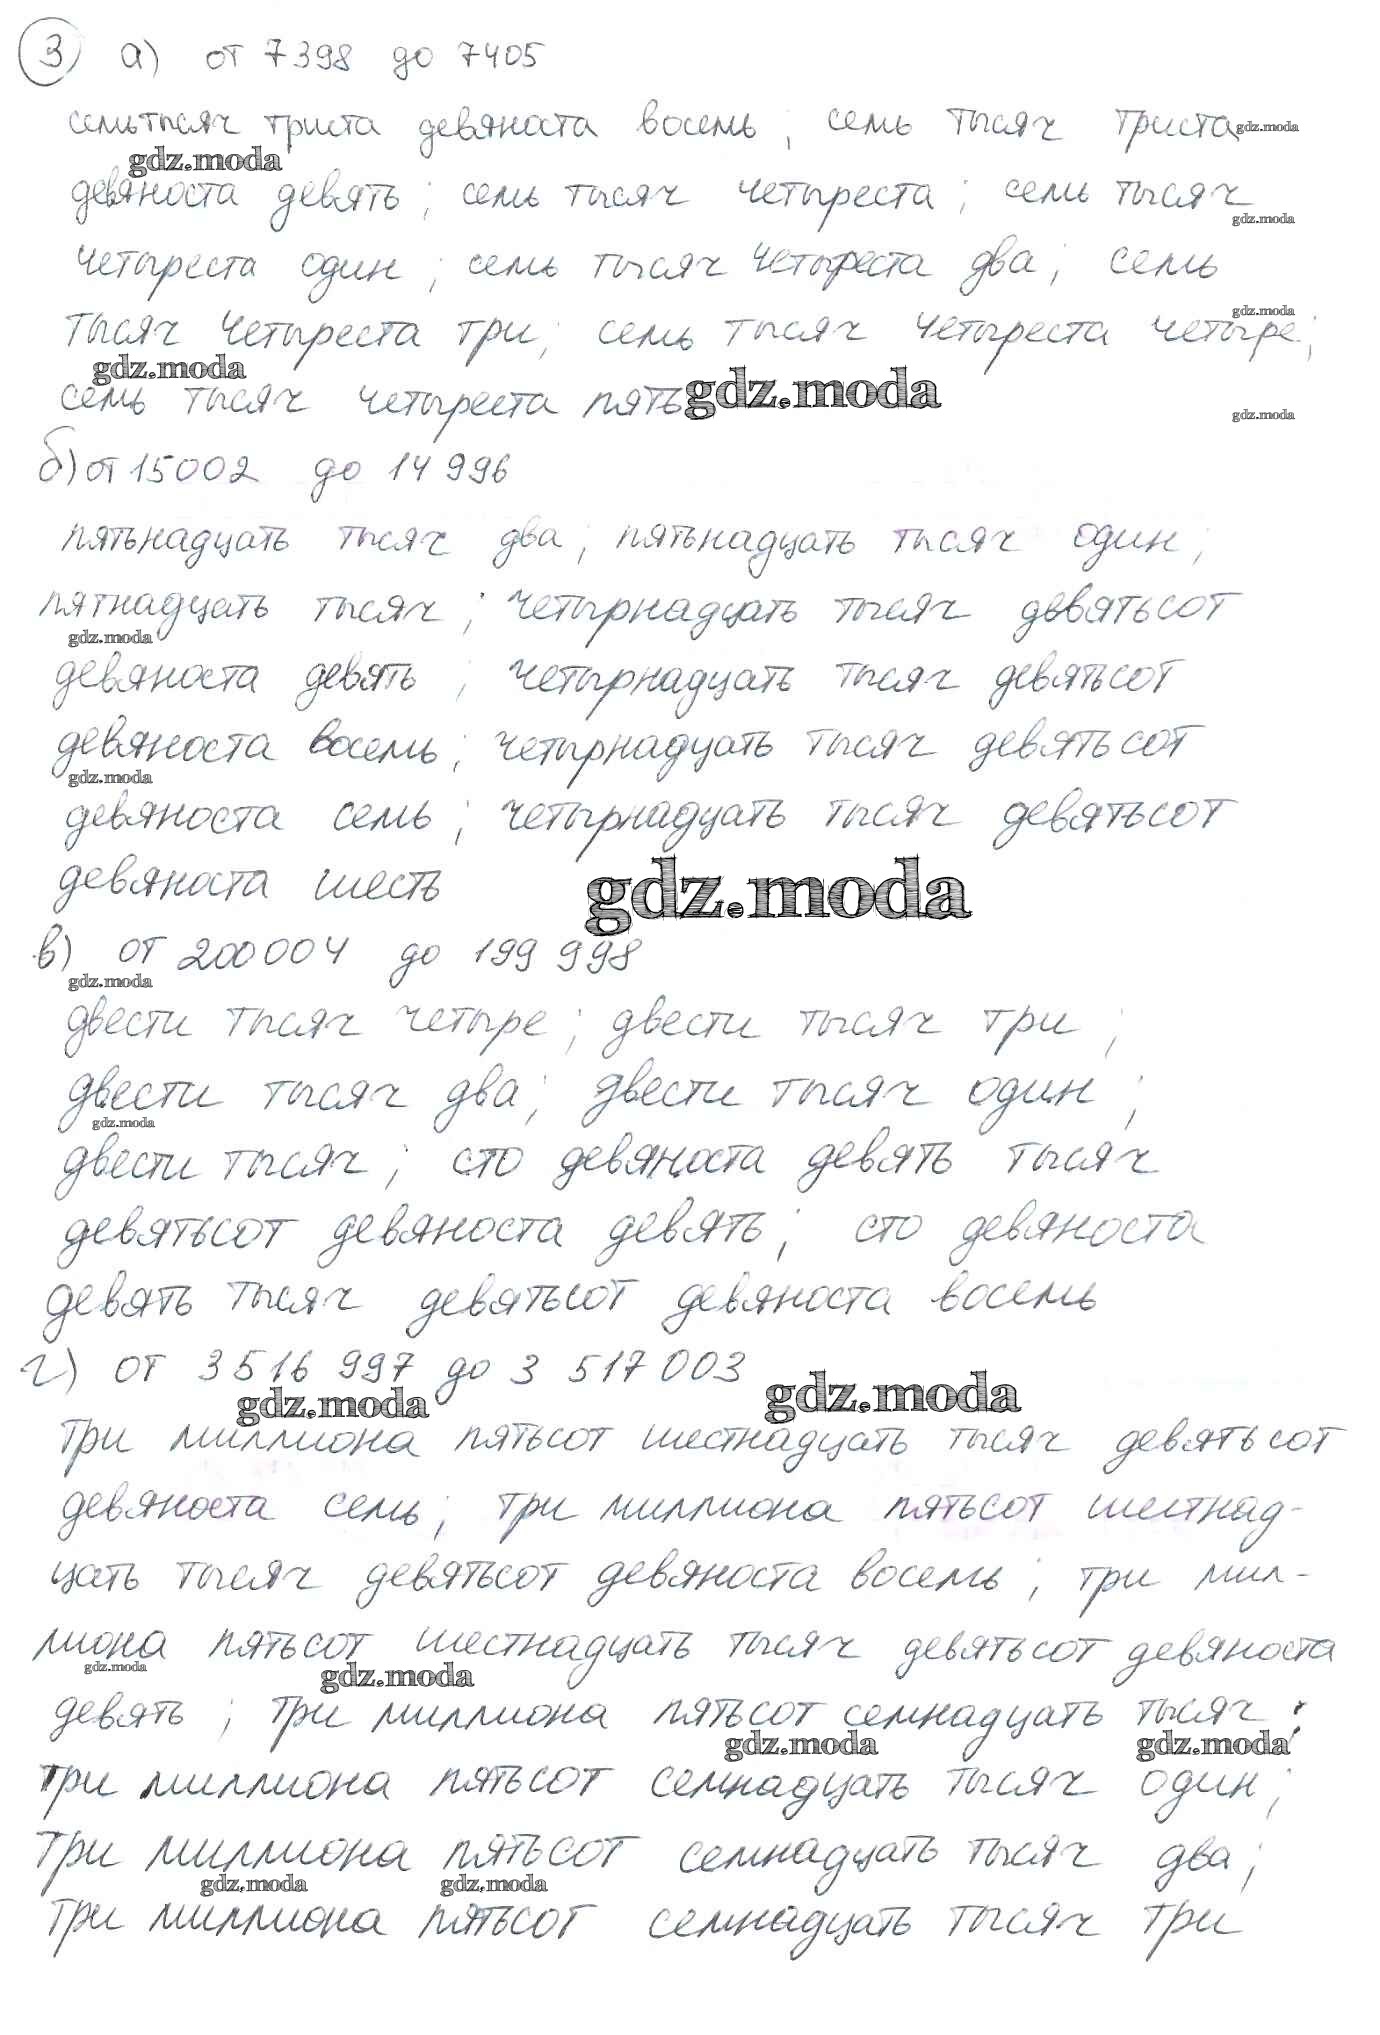 3 а) от 7398 до 7405
семь тысяч триста девяноста восемь, семь тысяч триста gdz.moda
gdz.moda
девяноста девять; семь тысяч четыреста; семь тысяч
gdz.moda
четыреста один; семь тысяч четыреста два; семь
gdz.moda
тысяч четыреста три; семь тысяч четыреста четыре;
gdz.moda
семь тысяч четыреста пять gdz.moda
gdz.moda
б) от 15002 до 14 996
пятьнадцать тысяч два; пятьнадцать тысяч один;
пятнадцать тысяч; четырнадцать тысяч девятьсот
gdz.moda
девяноста девять; четырнадцать тысяч девятьсот
девяноста восемь; четырнадцать тысяч девятьсот
gdz.moda
девяноста семь; четырнадцать тысяч девятьсот
девяноста шесть gdz.moda
в) от 200004 до 199 998
gdz.moda
двести тысяч четыре; двести тысяч три;
двести тысяч два; двести тысяч один;
gdz.moda
двести тысяч; сто девяноста девять тысяч
девятьсот девяноста девять; сто девяноста
девять тысяч девятьсот девяноста восемь
г) от 3516 997 до 3 517003
gdz.moda gdz.moda
три миллиона пятьсот шестнадцать тысяч девятьсот
девяноста семь; три миллиона пятьсот шестнад-
цать тысяч девятьсот девяноста восемь; три мил-
лиона пятьсот шестнадцать тысяч девятьсот девяноста
gdz.moda gdz.moda
девять; три миллиона пятьсот семнадцать тысяч;
gdz.moda gdz.moda
три миллиона пятьсот семнадцать тысяч один;
три миллиона пятьсот семнадцать тысяч два;
gdz.moda gdz.moda
три миллиона пятьсот семнадцать тысяч три